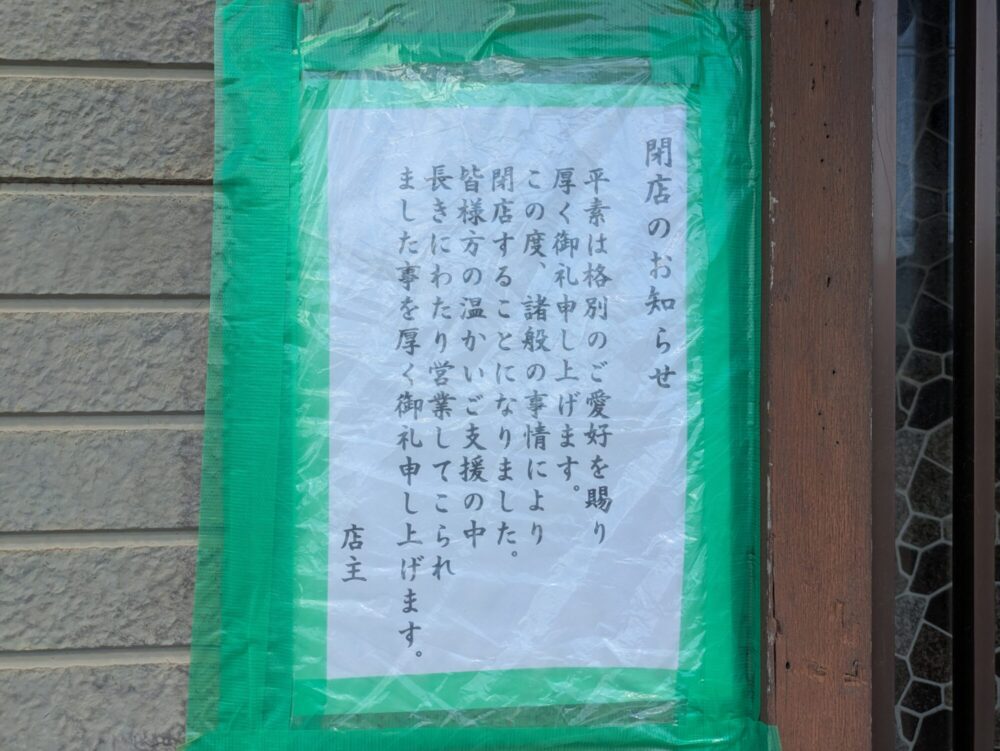 閉店のお知らせ
平素は格別のご愛好を賜り
厚く御礼申し上げます。
この度、諸般の事情により
閉店することになりました。
皆様方の温かいご支援の中
長きにわたり営業してこられ
ました事を厚く御礼申し上げます。
店主